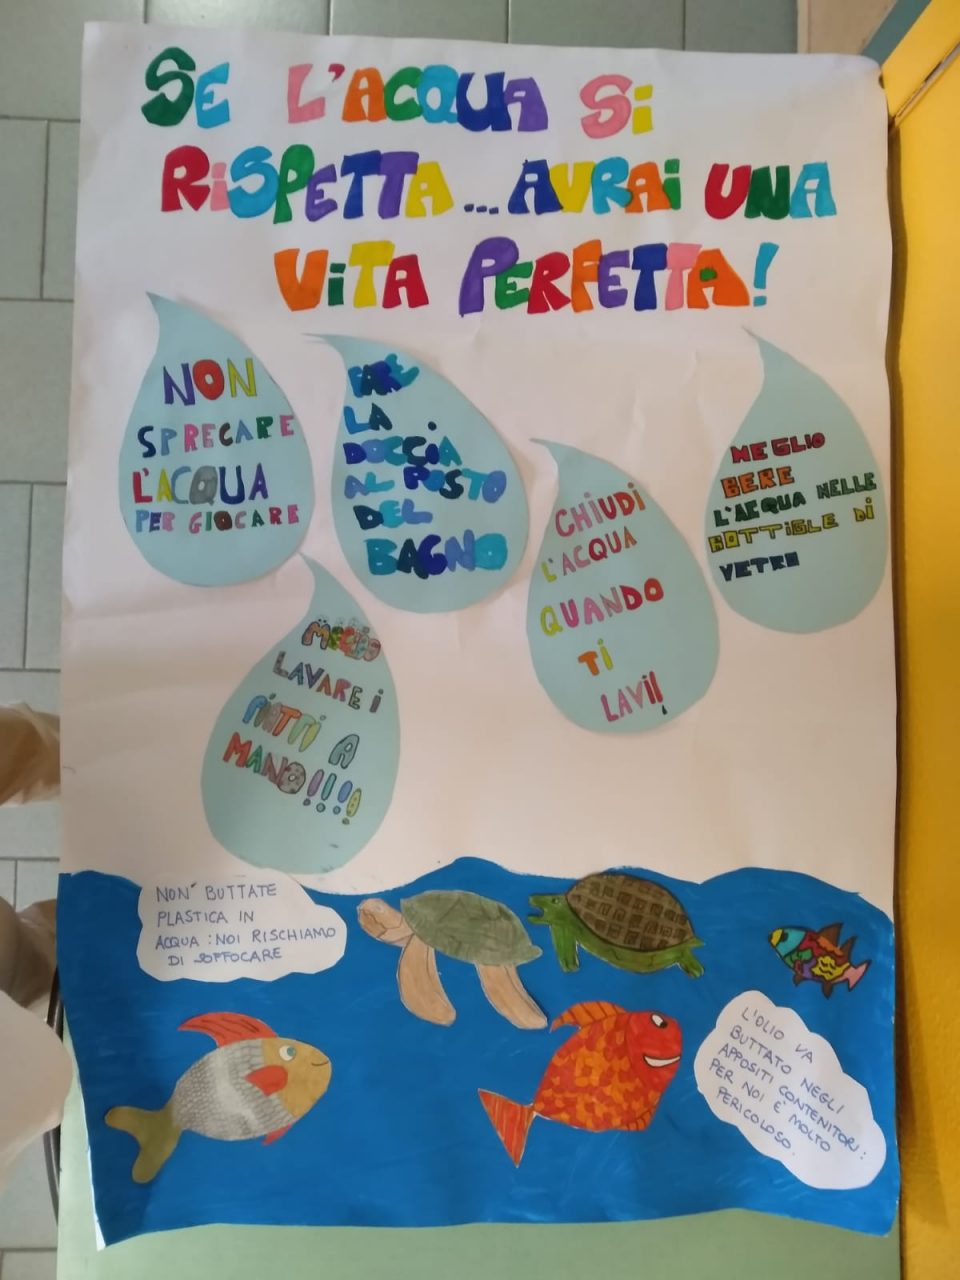 SE L'ACQUA Si
RiSPETTA...AVRAi UNA
ViTA PERFETTA!
NON
SPRECARE
L'ACQUA
PER GIOCARE
FARE
LA
DOCCiA
AL POSTO
DEL
BAGNO
CHiUDi
L'ACQUA
QUANDO
Ti
LAVi!!
MEGLIO
BERE
L'ACQUA NELLE
BOTTiGLE Di
VETRO
MEGLIO
LAVARE i
PiATTi A
MANO!!!!
NON BUTTATE
PLASTICA IN
ACQUA: NOI RISCHIAMO
DI SOFFOCARE
L'OLIO VA
BUTTATO NEGLI
APPOSITI CONTENITORI:
PER NOI E' MOLTO
PERICOLOSO.